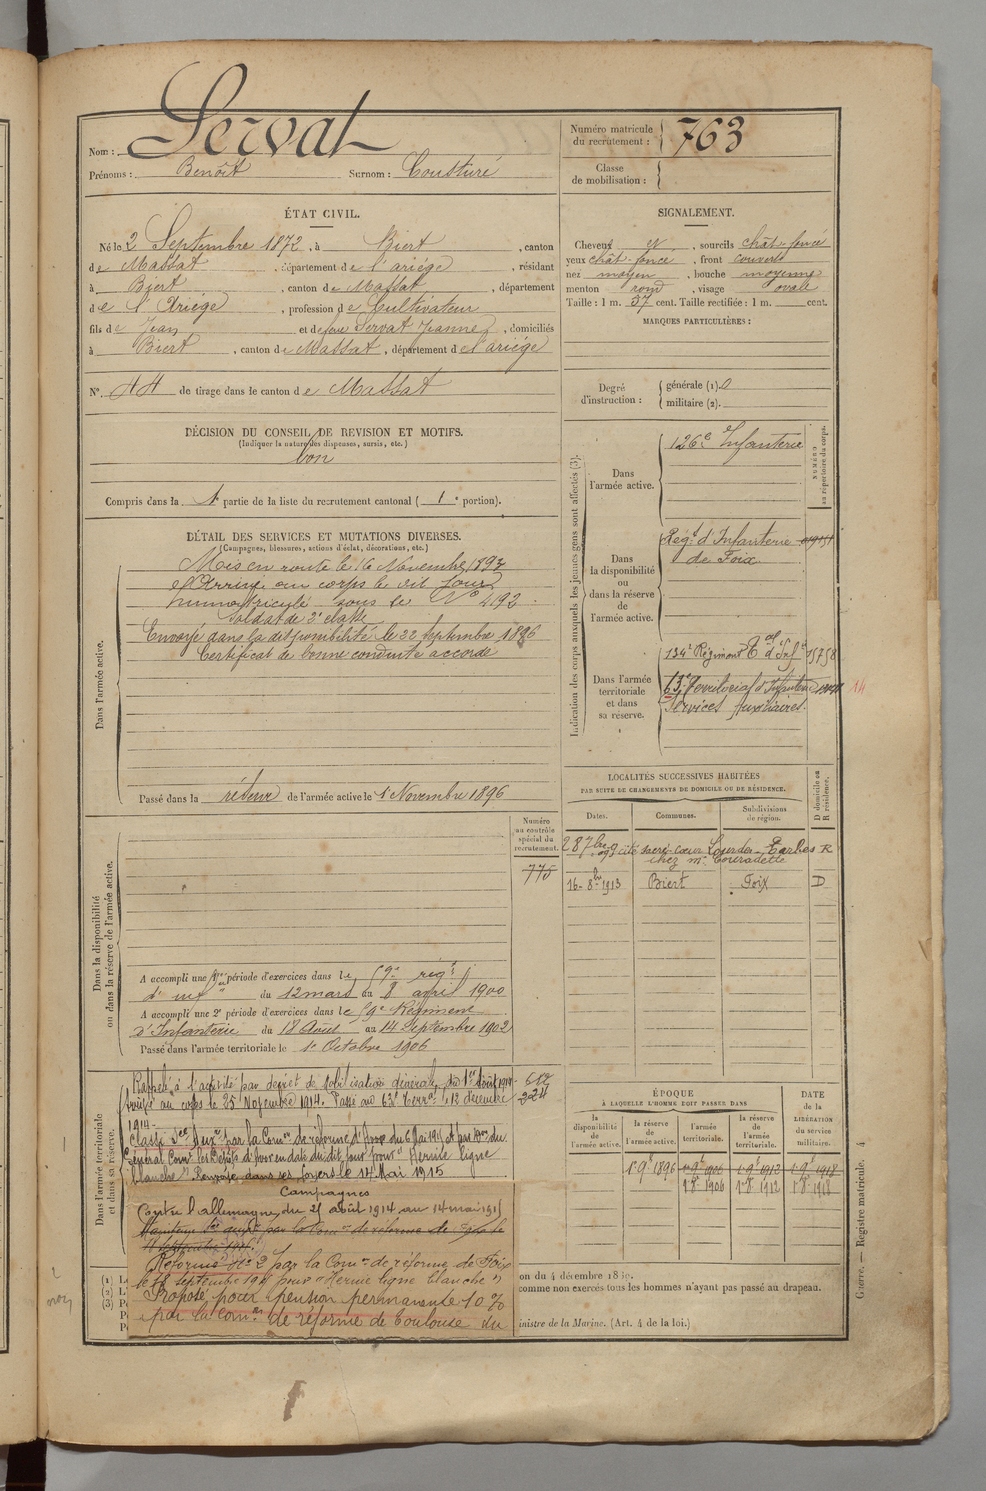 Nom : Servat
Prénoms : Benoît Surnom : Cousturé
Numéro matricule du recrutement : 763
Classe de mobilisation :
ÉTAT CIVIL.
Né le 2 Septembre 1872, à Biert, canton
de Massat, département de l'ariége, résidant
à Biert, canton de Massat, département
de l'Ariège, profession de Cultivateur
fils de Jean et de feue Servat Jeanne, domiciliés
à Biert, canton de Massat, département de l'ariége
N° 44 de tirage dans le canton de Massat
SIGNALEMENT.
Cheveux et, sourcils chât-foncé
yeux chât-foncé, front couvert
nez moyen, bouche moyenne
menton rond, visage ovale
Taille : 1 m. 57 cent. Taille rectifiée : 1 m. cent.
MARQUES PARTICULIÈRES :
Degré d'instruction : générale (1). 0
militaire (2).
DÉCISION DU CONSEIL DE REVISION ET MOTIFS.
(Indiquer la nature des dispenses, sursis, etc.)
bon
Compris dans la 1e partie de la liste du recrutement cantonal ( 1e portion).
DÉTAIL DES SERVICES ET MUTATIONS DIVERSES.
(Campagnes, blessures, actions d'éclat, décorations, etc.)
Dans l'armée active.
Mis en route le 16 Novembre 1893
Arrivé au corps le dit jour
Immatriculé sous le N° 4192
Soldat de 2e classe
Envoyé dans la disponibilité le 22 Septembre 1896
Certificat de bonne conduite accordé
Passé dans la réserve de l'armée active le 1 Novembre 1896
Indication des corps auxquels les jeunes gens sont affectés (3).
NUMÉRO au répertoire du corps.
Dans l'armée active.
126e Infanterie
Dans la disponibilité ou dans la réserve de l'armée active.
Régt d'Infanterie
de Foix
Dans l'armée territoriale et dans sa réserve.
134e Régiment Tal d'Infie 15758
63e Territorial d'Infanterie 14
Services Auxiliaires.
LOCALITÉS SUCCESSIVES HABITÉES
PAR SUITE DE CHANGEMENTS DE DOMICILE OU DE RÉSIDENCE.
Dates. Communes. Subdivisions de région. D domicile ou R résidence.
cité sacré-cœur Lourdes Tarbes R
chez Mr Couradette
16-8bre 1913 Biert Foix D
Dans la disponibilité ou dans la réserve de l'armée active.
Numéro au contrôle spécial du recrutement.
775
A accompli une 1re période d'exercices dans le 59e régt
d'inf du 12 mars au 8 avril 1900
A accompli une 2e période d'exercices dans le 59e Régiment
d'Infanterie du 18 Août au 14 Septembre 1902
Passé dans l'armée territoriale le 1er Octobre 1906
Dans l'armée territoriale et dans sa réserve.
Rappelé à l'activité par décret de mobilisation générale du 1er Août 1914
Arrivé au corps le 25 Novembre 1914. Passé au 63e Terral le 12 décembre
1914.
612
224
Classé Sce Auxre par la Comon de réforme d'Agen du 6 Mai 1915 et par don du
Général Comt les Dépôts d'Agen en date du dit jour pour "Hernie ligne
blanche". Renvoyé dans ses foyers le 14 Mai 1915
Campagnes
Contre l'allemagne, du 25 août 1914 au 14 mai 1915
Maintenu Sce auxre par la Comon de réforme de
Réformé N° 2 par la Comon de réforme de Foix
le 18 septembre 1917 pour "Hernie ligne blanche"
Proposé pour pension permanente 10 %
par la Comon de réforme de Toulouse du
ÉPOQUE
À LAQUELLE L'HOMME DOIT PASSER DANS
la disponibilité de l'armée active. la réserve de l'armée active. l'armée territoriale. la réserve de l'armée territoriale.
DATE de la LIBÉRATION du service militaire.
1-9e 1896 1-9e 1906 1-9e 1912 1-9e 1918
1-8e 1906 1-8e 1912 1-8e 1918
on du 4 décembre
comme non exercés tous les hommes n'ayant pas passé au drapeau.
inistre de la Marine. (Art. 4 de la loi.)
Guerre. — Registre matricule. 4